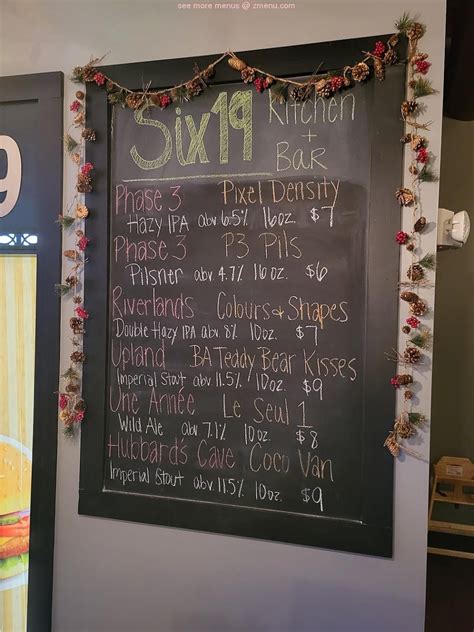 see more menus @ zmenu.com
Six19 Kitchen
+
Bar
9
Phase 3 Pixel Density
Hazy IPA abv 6.5% 16oz. $7
Phase 3 P3 Pils
Pilsner abv. 4.7% 16oz. $6
Riverlands Colours & Shapes
Double Hazy IPA abv. 8% 10oz. $7
Upland BA Teddy Bear Kisses
Imperial Stout abv. 11.5% 10oz. $9
Une Année Le Seul 1
Wild Ale abv 7.1% 10oz. $8
Hubbard's Cave Coco Van
Imperial Stout abv. 11.5% 10oz. $9